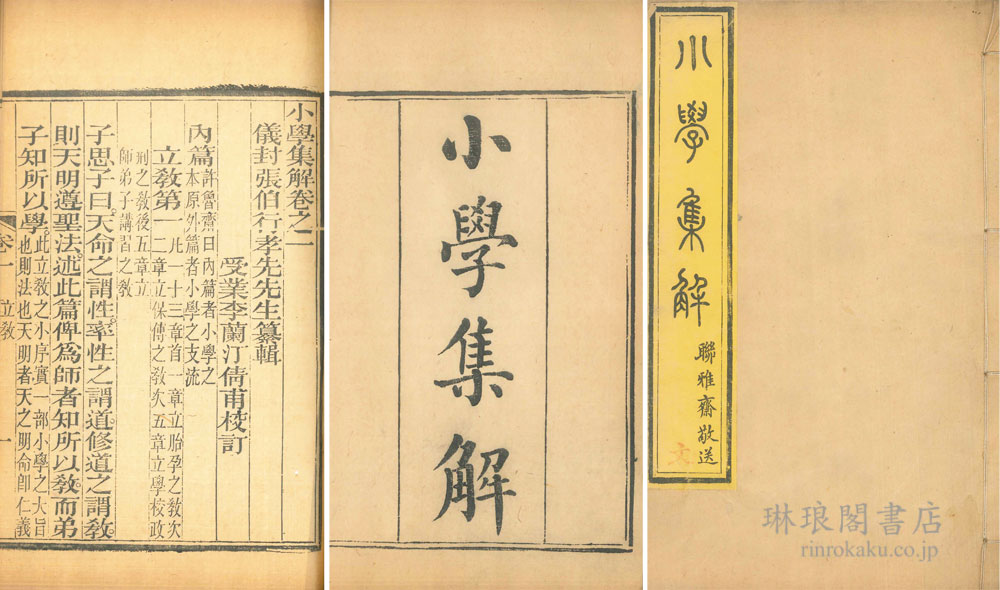 小學集解
聯雅齋敬送
文
琳琅閣書店
rinrokaku.co.jp
小學集解
小學集解卷之一
儀封張伯行孝先先生纂輯
受業李蘭汀倩甫校訂
內篇許魯齋曰內篇者小學之
本原外篇者小學之支流
立教第一凡一十三章首一章立胎孕之教次
二章立保傅之教次五章立學校政
刑之教後五章立
師弟子講習之教
子思子曰天命之謂性率性之謂道修道之謂教
則天明遵聖法述此篇俾爲師者知所以教而弟
子知所以學此立教之小序實一部小學之大旨
也則法也天明者天之明命卽仁義
卷一 立教 一